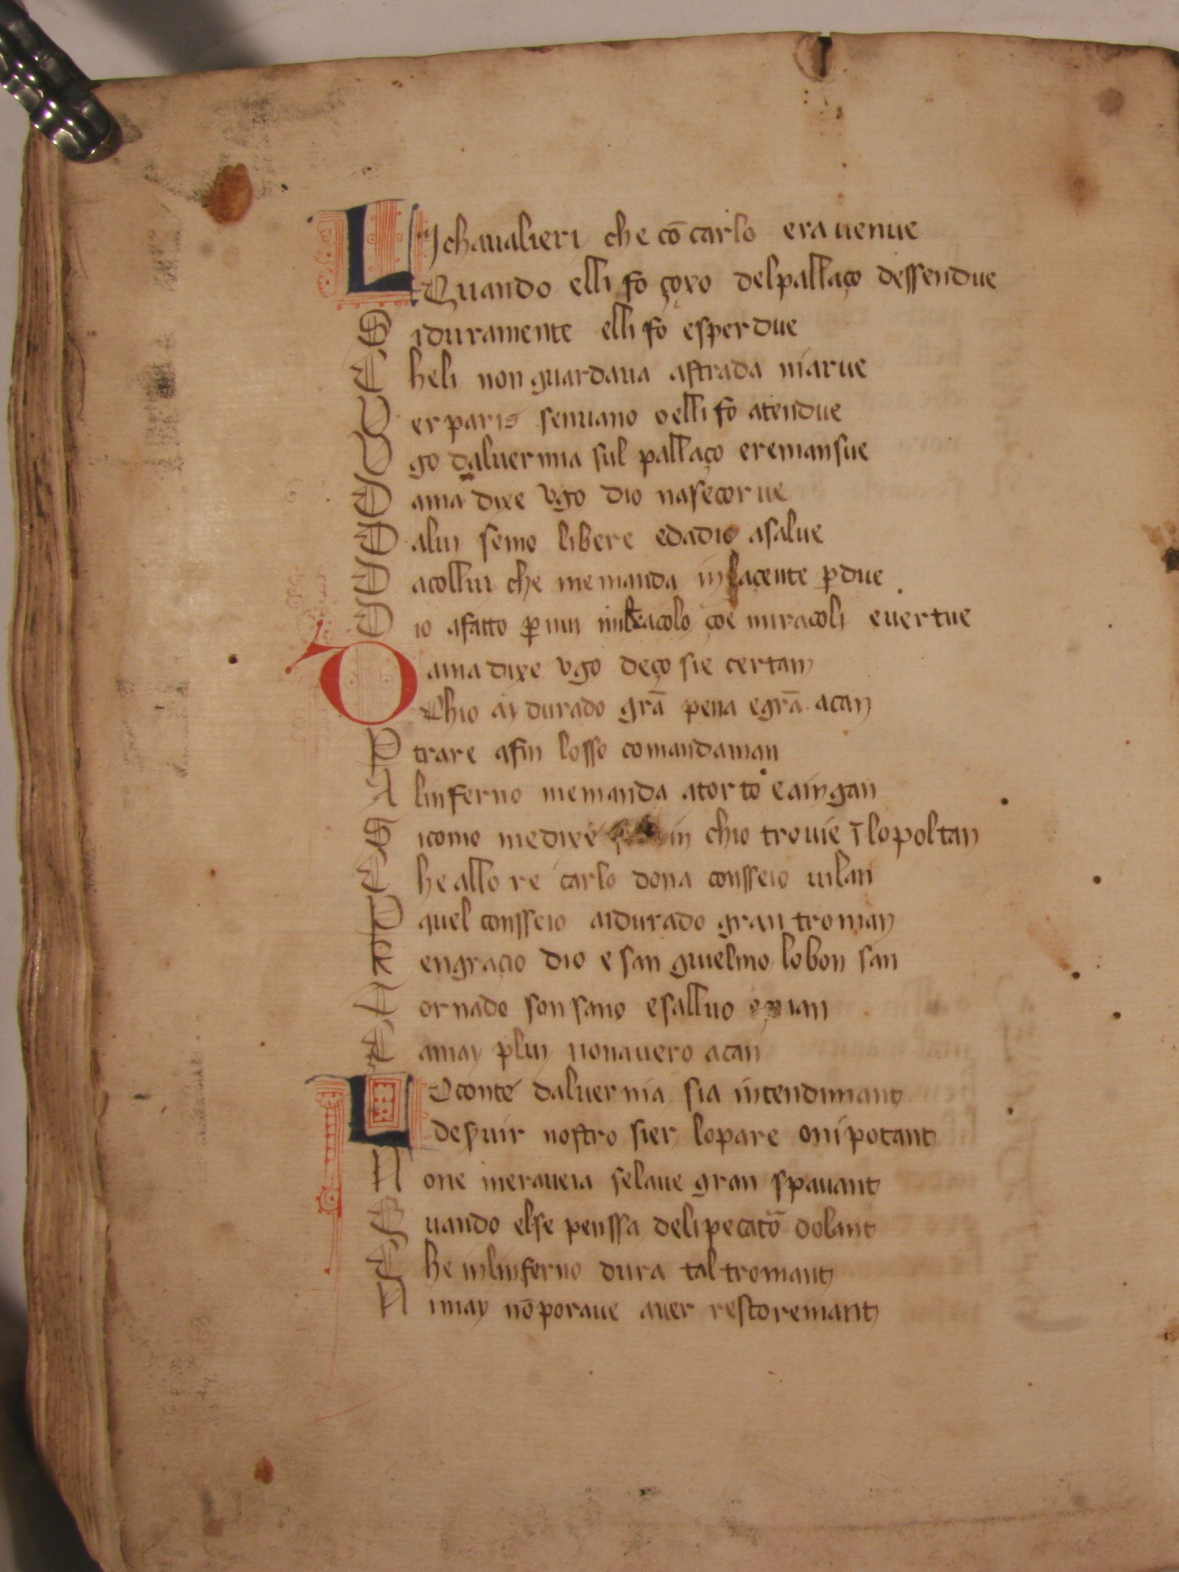 Li chaualieri che cō carlo era uenue
Quando elli fo çoxo del pallaço dessendue
S i duramente elli fo esperdue
C he li non guardaua a strada ni a rue
V er paris sen uano o elli fo atendue
V go daluernia sul pallaço e remansue
D ama dixe vgo dio na secorue
D a lui semo libere e da dio asalue
D a collui che me manda in ꝑdue
D io a fatto ꝑ nui miracolo çoe miracoli e uertue
Dama dixe vgo de ço sie certan
Chio ai durado grā pena e grā acan
P trare a fin losso comandaman
A linferno me manda a torto e a ingan
S icomo me dixe chio trouie ī lo poltan
C he allo re carlo dona consseio uilan
P quel consseio ai durado gran troman
R engraçio dio e san guielmo lo bon san
T ornado son sano e salluo
C amay plui non auero acan
Lo conte daluernia sia intendimant
de nostro sier lo pare onipotant
N on e meraueia selaue gran spauant
Q uando else penssa deli pecatō dolant
C he in linferno dura tal tromant
N i may nō poraue auer restoremant